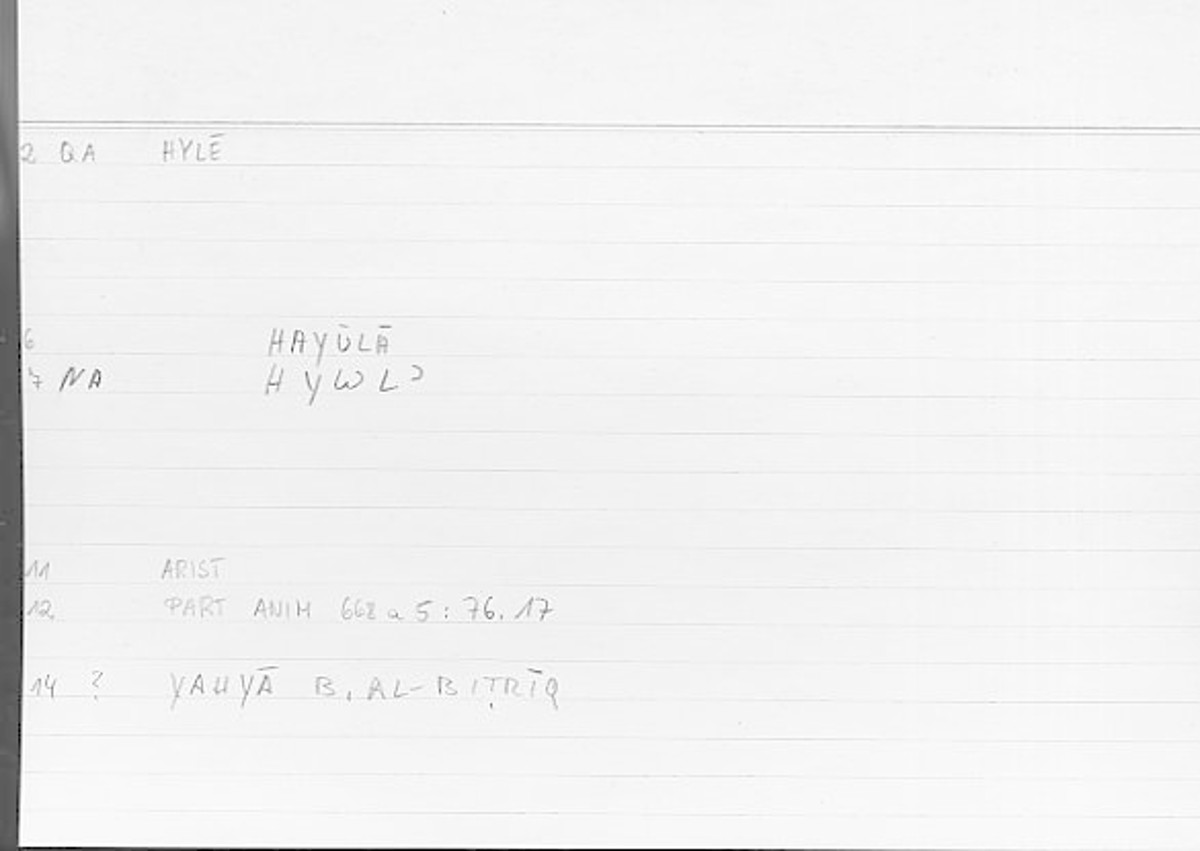 2 QA HYLĒ
6 HAYŪLĀ
7 NA HYWLʾ
11 ARIST
12 PART ANIM 668 a 5 : 76. 17
14 ? YAḤYĀ B. AL-BIṬRĪQ